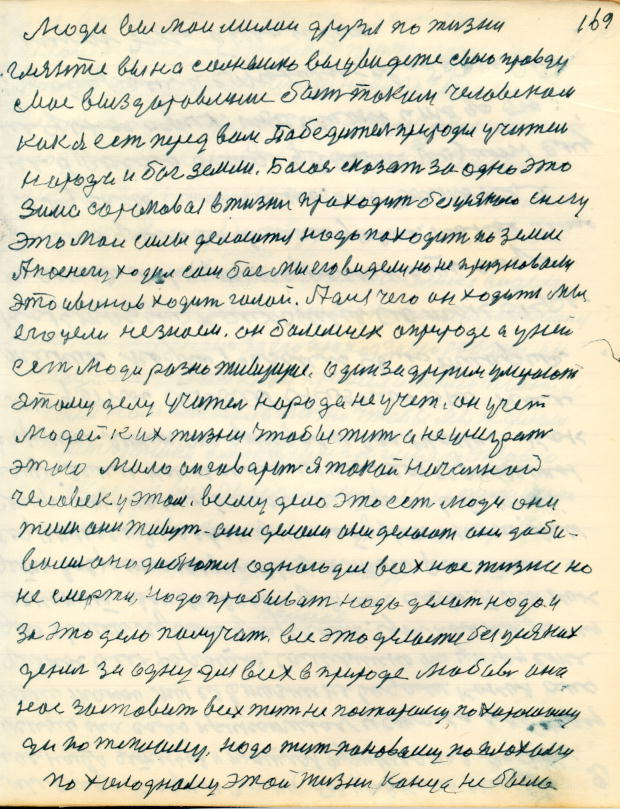 169
Люди вы мои милои друзя по жизни
гляньте вы на солнышко вы увидете свою правду
свое выздаровление быт таким человеком
как я ест перед вам Победител природы учител
народа и бог земли. Богоя сказат за одно это
Зима суровоя в жизни проходит без снегу
это мои силы делоются надо походит по земле
А по снегу ходил сам бог мы его видели но не признавали
это иванов ходит голой. Для чего он ходит мы
его цели не знаем. он болеищек о природе а у ней
ест люди разно живущие. один за другим умирают
этому делу учител народа не учет. он учет
людей к их жизни чтобы жит а не умират
этого мало он говарит я такой начальной
человек у этом. всему дело это ест люди они
жили они живут они делали они делают они доби-
вались они добютя одного для всех нас жизни но
не смерти, надо пробыват надо делат надо и
за это дело получат. все это делаете без всяких
денег за одну для всех в природе любовь она
нас заставит всех жит не по старому, по харошему
да по теплому. надо жит по новаму, по плохому
по холодному этой жизни конца не было